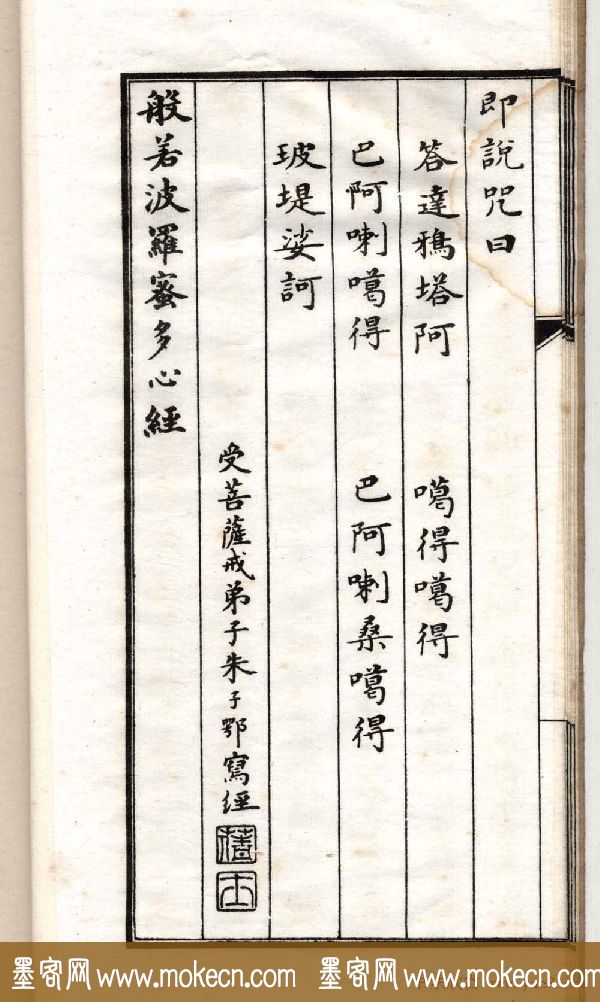 即說咒曰
答達鴉塔阿 噶得噶得
巴阿喇噶得 巴阿喇桑噶得
玻堤娑訶
受菩薩戒弟子朱子鄂寫經
般若波羅蜜多心經
墨客网 www.mokecn.com 墨客网 www.mokecn.com